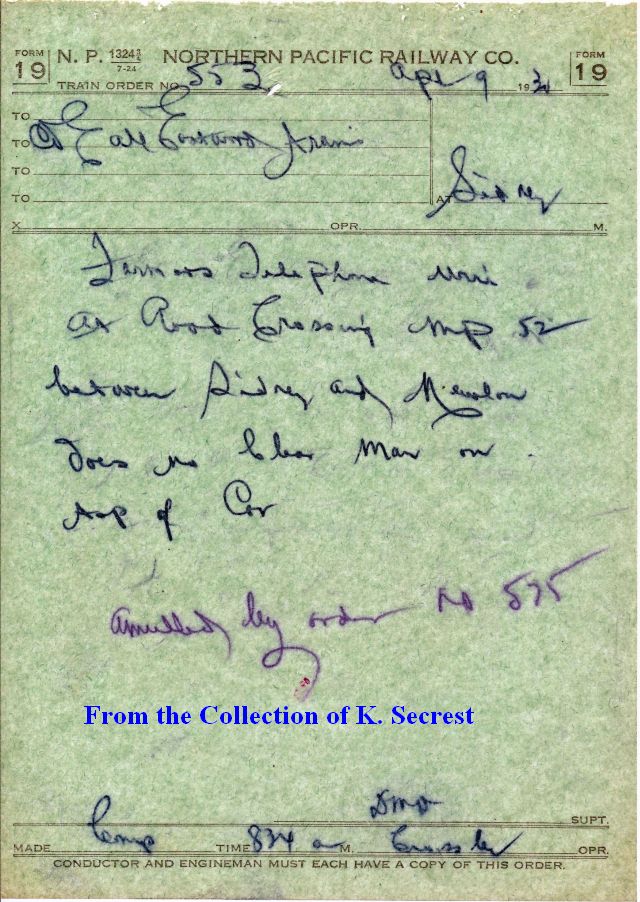 FORM 19 N. P. 1324 3/4 7-24 NORTHERN PACIFIC RAILWAY CO. FORM 19
TRAIN ORDER NO. 553 Apl 9 1931
TO
TO C&E all Eastward Trains
TO
TO AT Sidney
X OPR. M.
Farmers Telephone wire
At Road Crossing MP 52
between Sidney and Newlon
does no Clear Man on
top of Car
annulled by order no 575
From the Collection of K. Secrest
SUPT.
MADE Comp TIME 834 a M. OPR.
CONDUCTOR AND ENGINEMAN MUST EACH HAVE A COPY OF THIS ORDER.